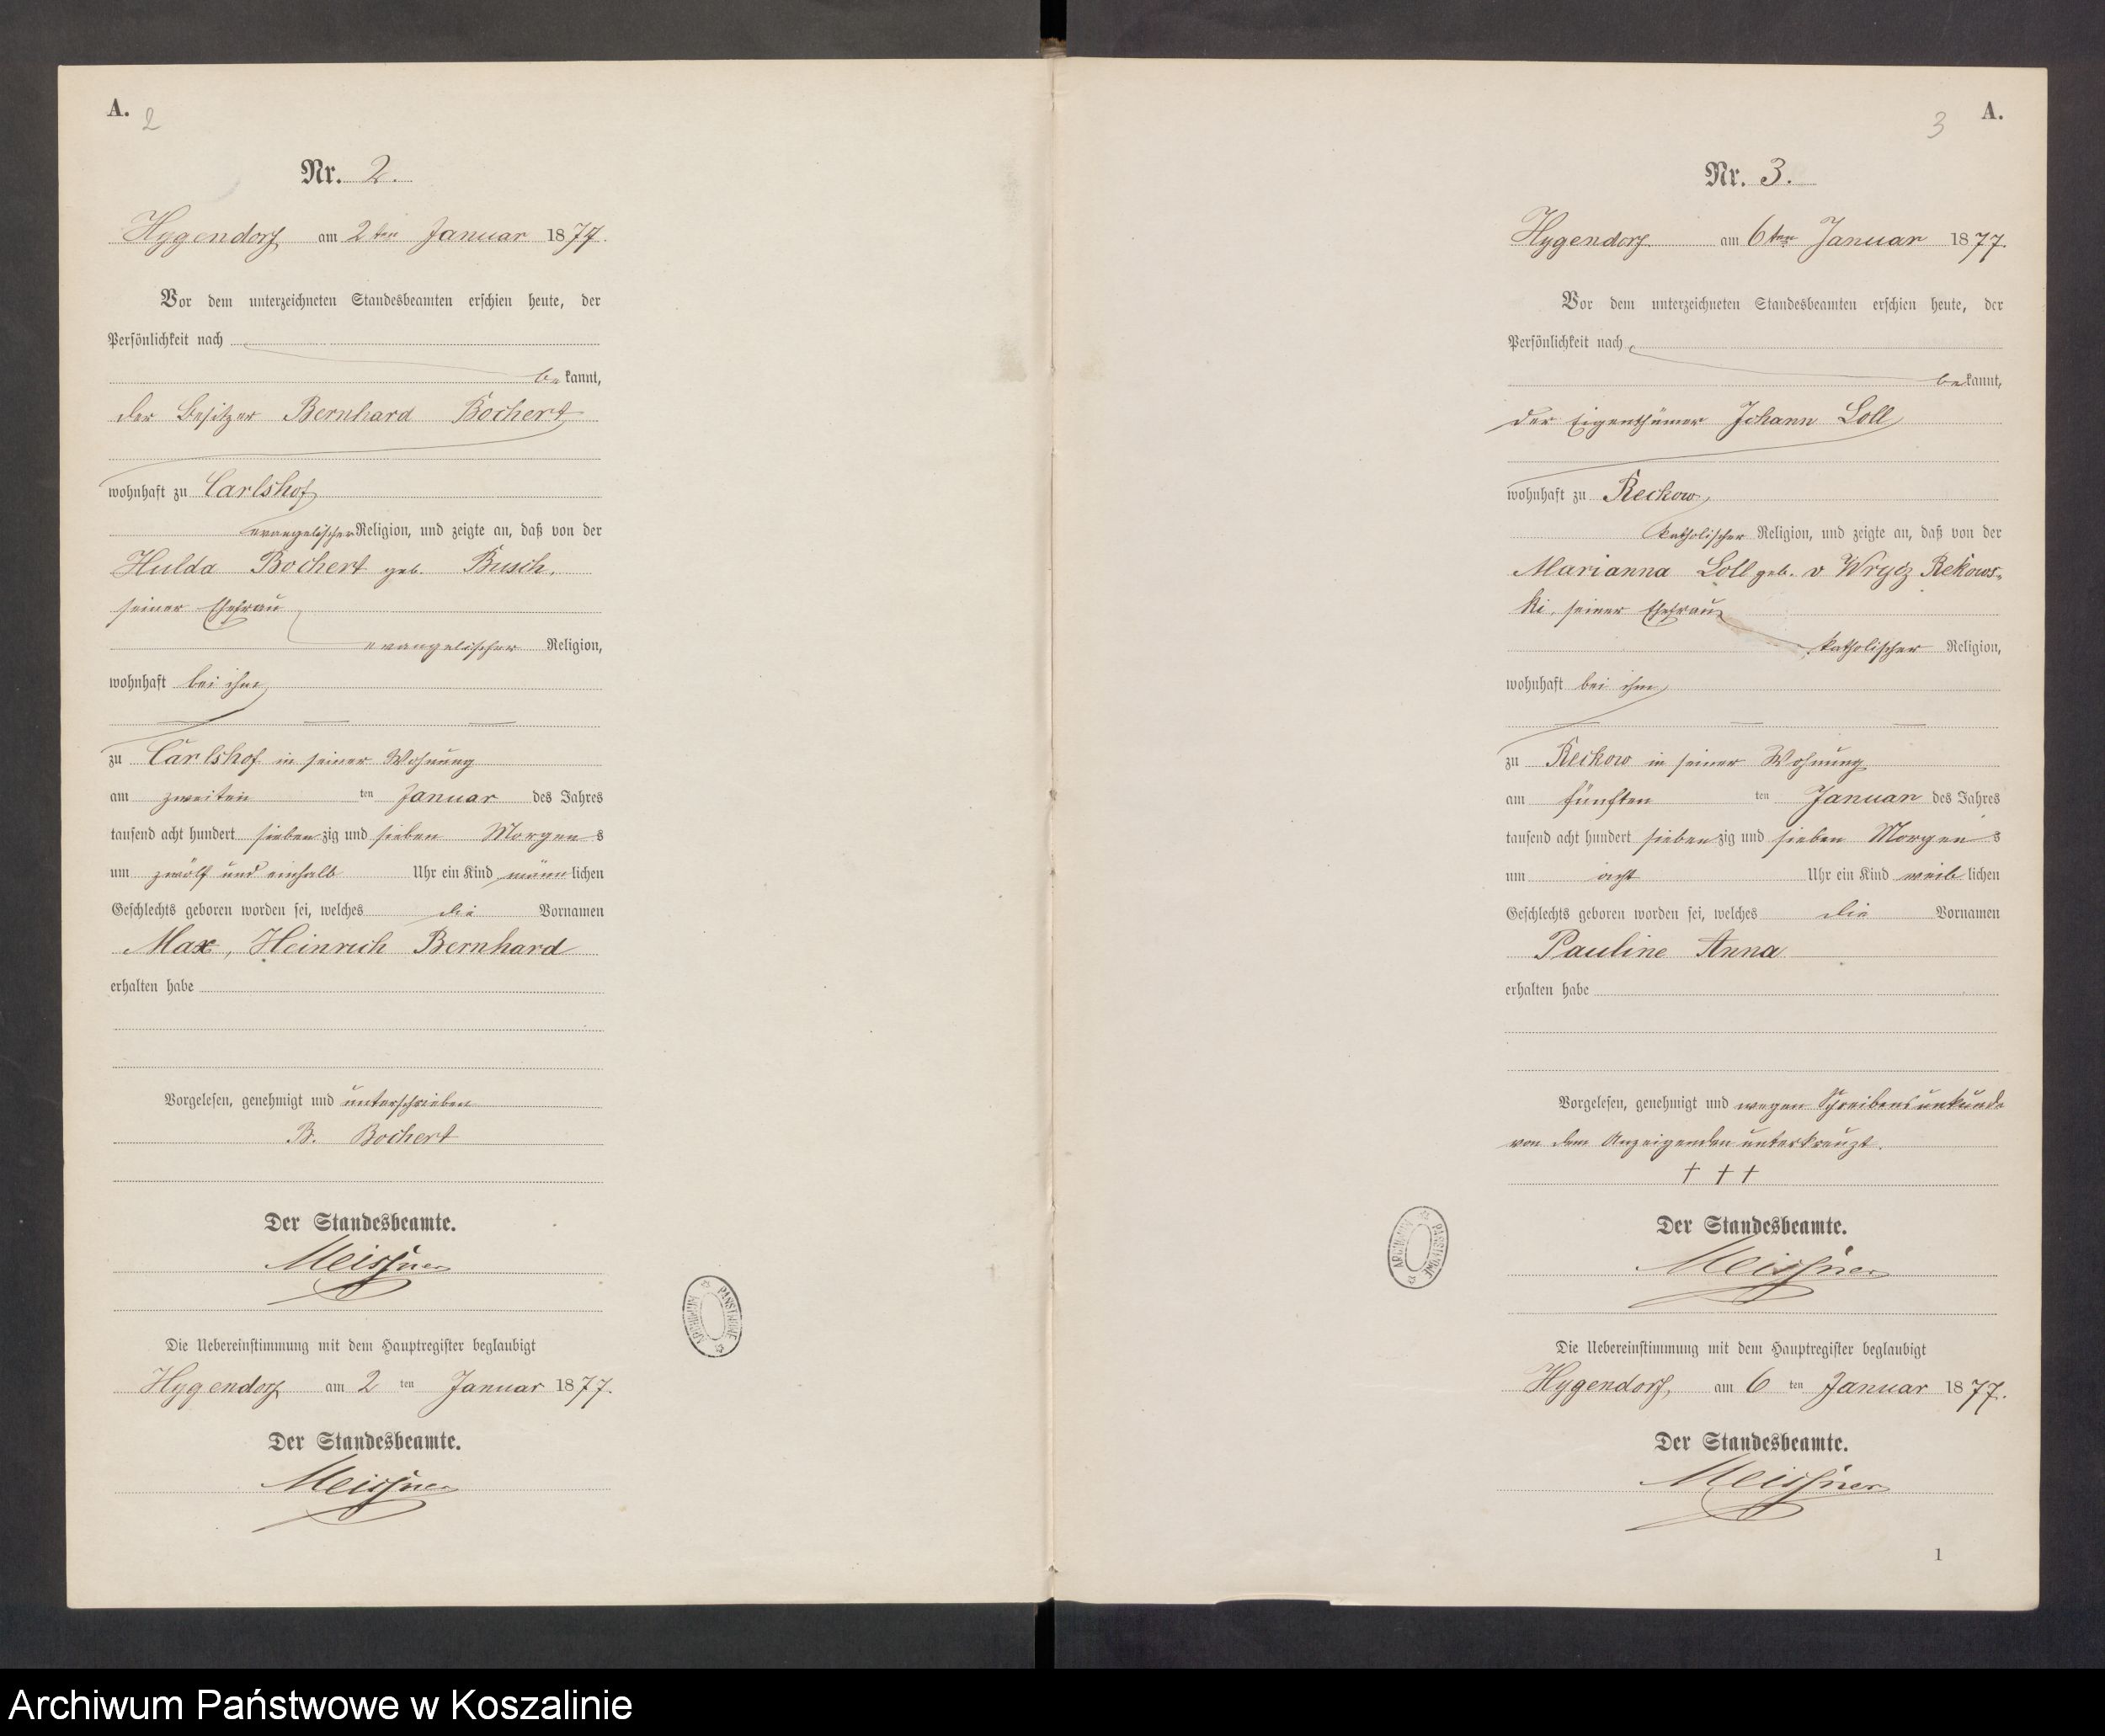 A.
2
Nr. 2.
Hygendorf am 2ten Januar 1877.
Vor dem unterzeichneten Standesbeamten erschien heute, der
Persönlichkeit nach
be kannt,
der Besitzer Bernhard Bochert
wohnhaft zu Carlshof
evangelischer Religion, und zeigte an, daß von der
Hulda Bochert geb. Busch,
seiner Ehefrau
evangelischer Religion,
wohnhaft bei ihm
zu Carlshof in seiner Wohnung
am zweiten ten Januar des Jahres
tausend acht hundert sieben zig und sieben Morgens
um zwölf und einhalb Uhr ein Kind männ lichen
Geschlechts geboren worden sei, welches die Vornamen
Max, Heinrich Bernhard
erhalten habe
Vorgelesen, genehmigt und unterschrieben
B. Bochert
Der Standesbeamte.
Meissner
Die Uebereinstimmung mit dem Hauptregister beglaubigt
Hygendorf am 2 ten Januar 1877.
Der Standesbeamte.
Meissner
ARCHIWUM PAŃSTWOWE
A.
3
Nr. 3.
Hygendorf am 6ten Januar 1877.
Vor dem unterzeichneten Standesbeamten erschien heute, der
Persönlichkeit nach
be kannt,
der Eigenthümer Johann Loll
wohnhaft zu Reckow
katholischer Religion, und zeigte an, daß von der
Marianna Loll geb. v Wrycz Rekows-
ki, seiner Ehefrau
katholischer Religion,
wohnhaft bei ihm
zu Reckow in seiner Wohnung
am fünften ten Januar des Jahres
tausend acht hundert sieben zig und sieben Morgens
um acht Uhr ein Kind weib lichen
Geschlechts geboren worden sei, welches die Vornamen
Pauline Anna
erhalten habe
Vorgelesen, genehmigt und wegen Schreibensunkunde
von dem Anzeigenden unterkreuzt.
† † †
Der Standesbeamte.
Meissner
Die Uebereinstimmung mit dem Hauptregister beglaubigt
Hygendorf, am 6 ten Januar 1877.
Der Standesbeamte.
Meissner
1
ARCHIWUM PAŃSTWOWE
Archiwum Państwowe w Koszalinie